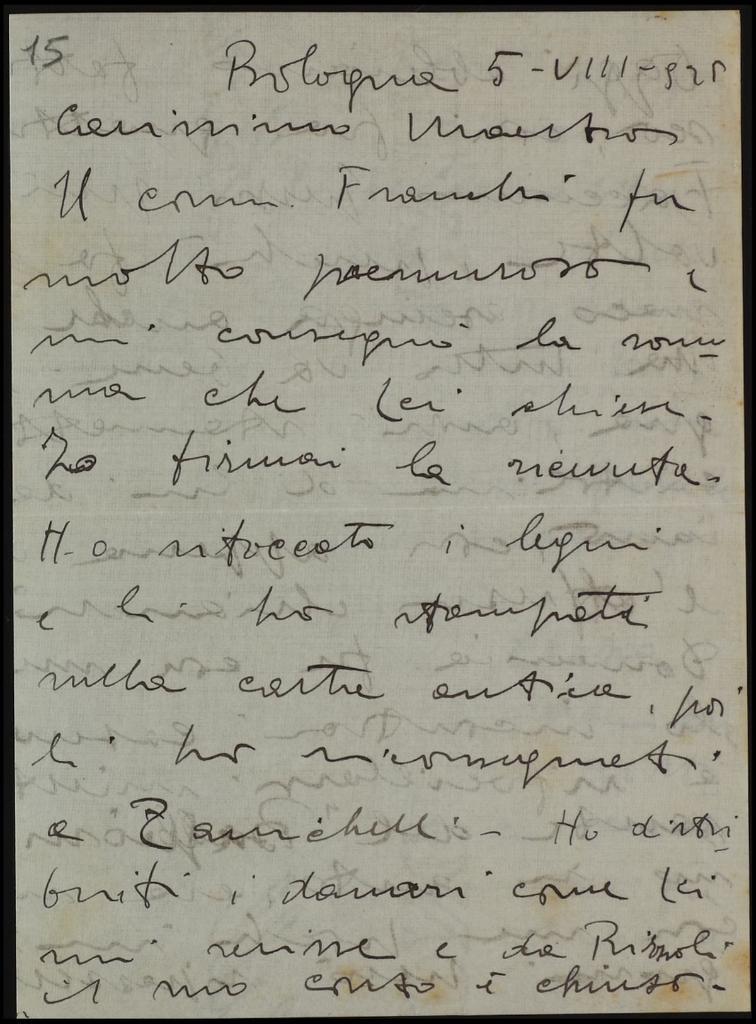 15
Bologna 5-VIII-925
Carissimo Maestro
Il comm. Franchi fu
molto premuroso e
mi consegnò la som=
ma che Lei chiese.
Io firmai la ricevuta.
Ho ritoccato i legni
e li ho stampati
sulla carta antica, poi
li ho riconsegnati
a Zanichelli - Ho distri=
buiti i danari come Lei
mi scrisse e da Rizzoli
il suo conto è chiuso.